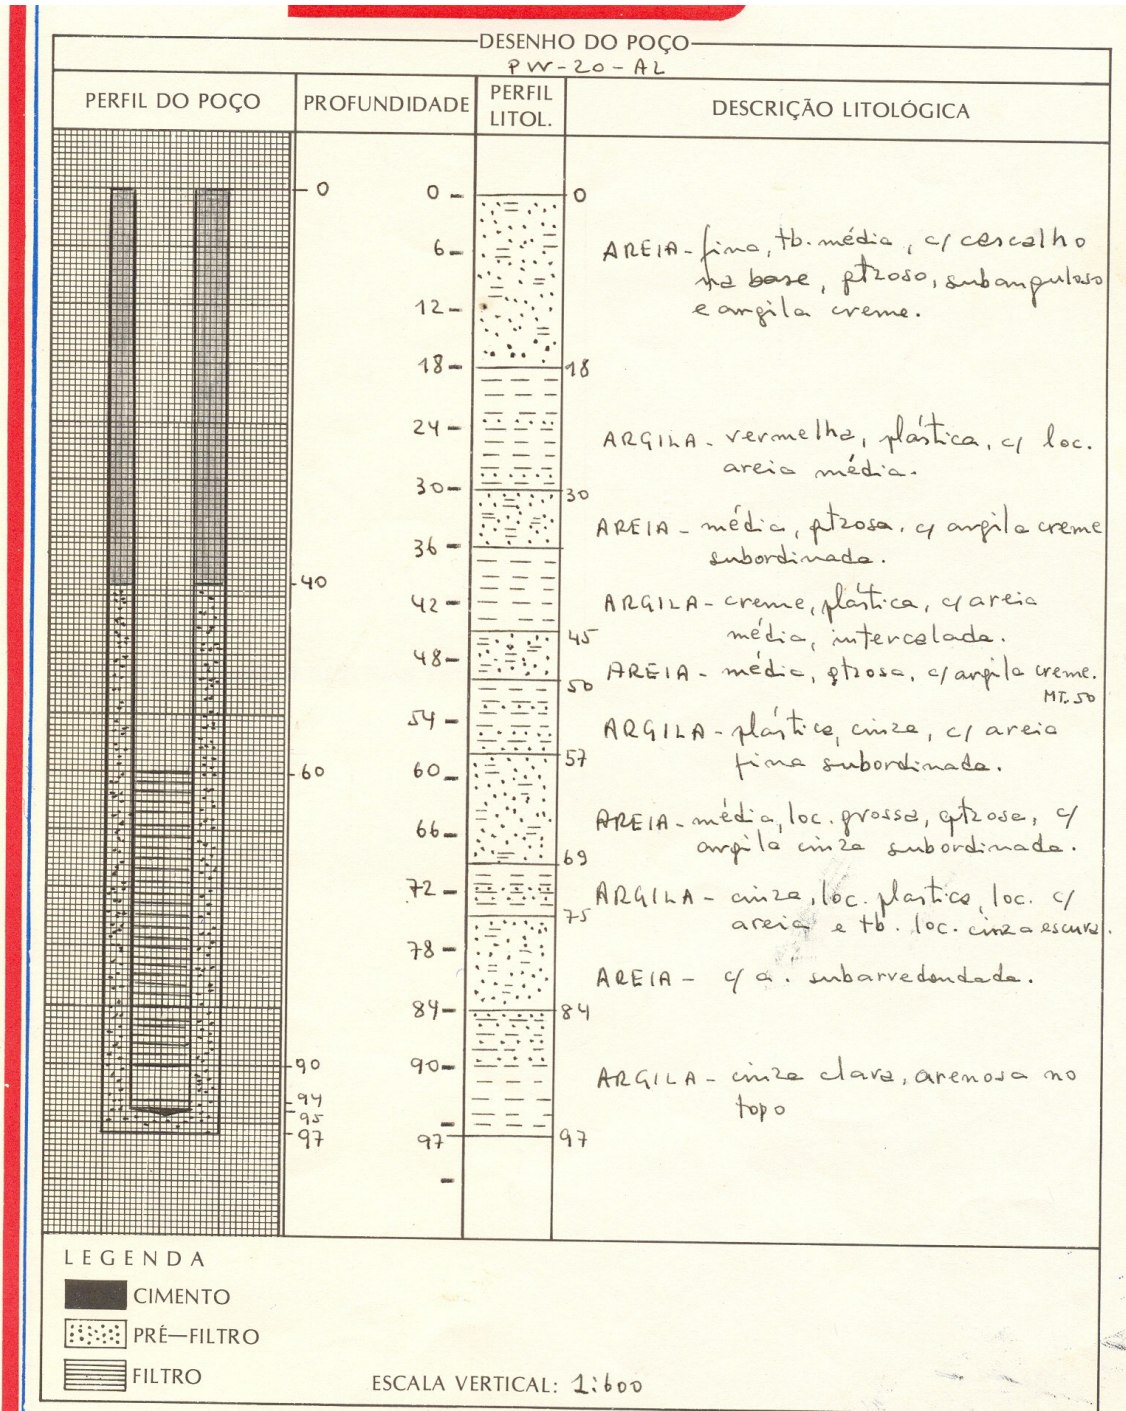 DESENHO DO POÇO
PW-20-AL
PERFIL DO POÇO
PROFUNDIDADE
PERFIL
LITOL.
DESCRIÇÃO LITOLÓGICA
0
40
60
90
94
95
97
0
6
12
18
24
30
36
42
48
54
60
66
72
78
84
90
97
0
18
30
45
50
57
69
75
84
97
AREIA - fina, tb. média, c/ cascalho
na base, qtzoso, subanguloso
e argila creme.
ARGILA - vermelha, plástica, c/ loc.
areia média.
AREIA - média, qtzosa, c/ argila creme
subordinada.
ARGILA - creme, plástica, c/ areia
média, intercalada.
AREIA - média, qtzosa, c/ argila creme.
MT.50
ARGILA - plástica, cinza, c/ areia
fina subordinada.
AREIA - média, loc. grossa, qtzosa, c/
argila cinza subordinada.
ARGILA - cinza, loc. plastica, loc. c/
areia e tb. loc. cinza escura.
AREIA - c/ a. subarredondada.
ARGILA - cinza clara, arenosa no
topo
LEGENDA
CIMENTO
PRÉ-FILTRO
FILTRO
ESCALA VERTICAL: 1:600